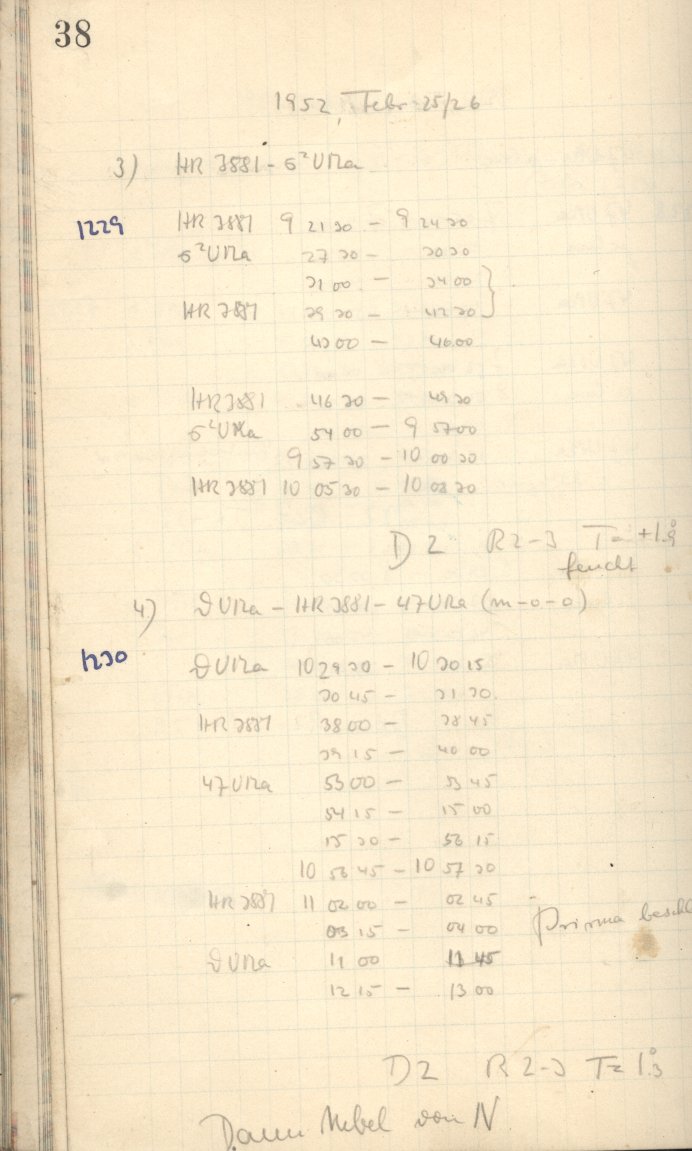 38
1952, Febr. 25/26
3) HR 3881 - σ²UMa
1229 HR 3881 9 21 30 - 9 24 30
σ²UMa 27 30 - 30 30
31 00 - 34 00
HR 3881 39 30 - 42 30
43 00 - 46 00
HR 3881 46 30 - 49 30
σ²UMa 54 00 - 9 57 00
9 57 30 - 10 00 30
HR 3881 10 05 30 - 10 08 30
D 2 R 2-3 T = +1.°9
feucht
4) ϑ UMa - HR 3881 - 47 UMa (m-o-o)
1230 ϑ UMa 10 29 30 - 10 30 15
30 45 - 31 30
HR 3881 38 00 - 38 45
39 15 - 40 00
47 UMa 53 00 - 53 45
54 15 - 15 00
15 30 - 56 15
10 56 45 - 10 57 30
HR 3881 11 02 00 - 02 45
03 15 - 04 00 Prisma beschl
ϑ UMa 11 00 11 45
12 15 - 13 00
D 2 R 2-3 T = 1.°3
Dann Nebel von N